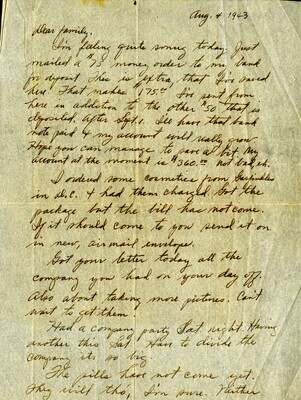 Aug. 4 1943
Dear family,
I'm feeling quite today. Just
mailed a 75 money order to my bank
for deposit. This is extra, that I've saved
here! That makes $175.00 I've sent from
here in addition to the other $50 that is
deposited. After Sept. 1. I'll have that bank
note paid & my account will really grow.
Hope you can manage to save a bit. My
account at the moment is $360.00 not bad, eh.
I ordered some cosmetics from
in D.C. & had them charged. Got the
package but the bill has not come.
If it should come to you send it on
in new, airmail envelope.
Got your letter today, all the
company you had on your day off.
Also about taking more pictures. Can't
wait to get them!
Had a company party Sat. night. Having
another this Sat. Have to divide the
company its so big.
The pills have not come yet.
They will tho, I'm sure. Neither